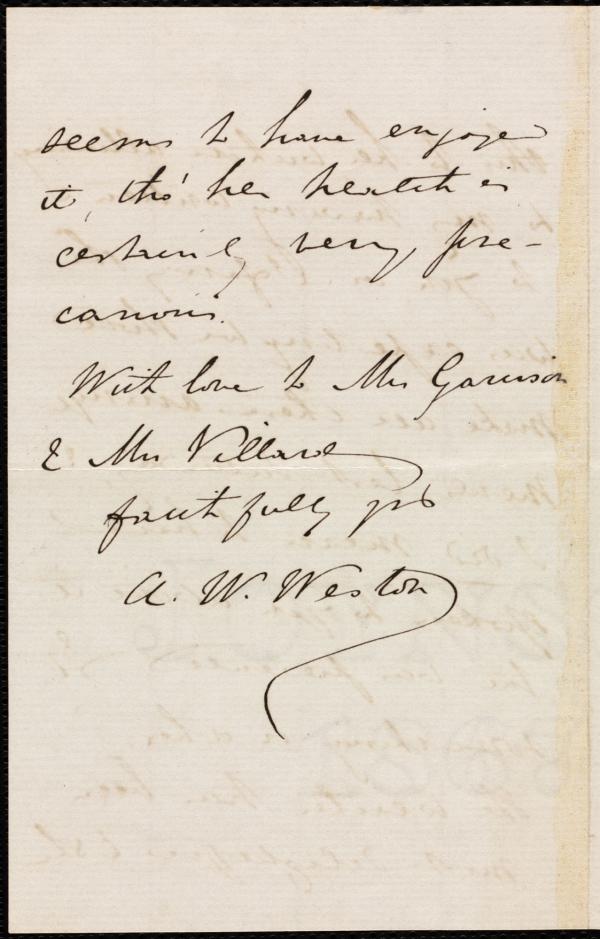 seems to have enjoyed
it, tho' her health is
certainly very pre-
carious.
With love to Mrs Garrison
& Mrs Villard
faithfully yrs
A. W. Weston